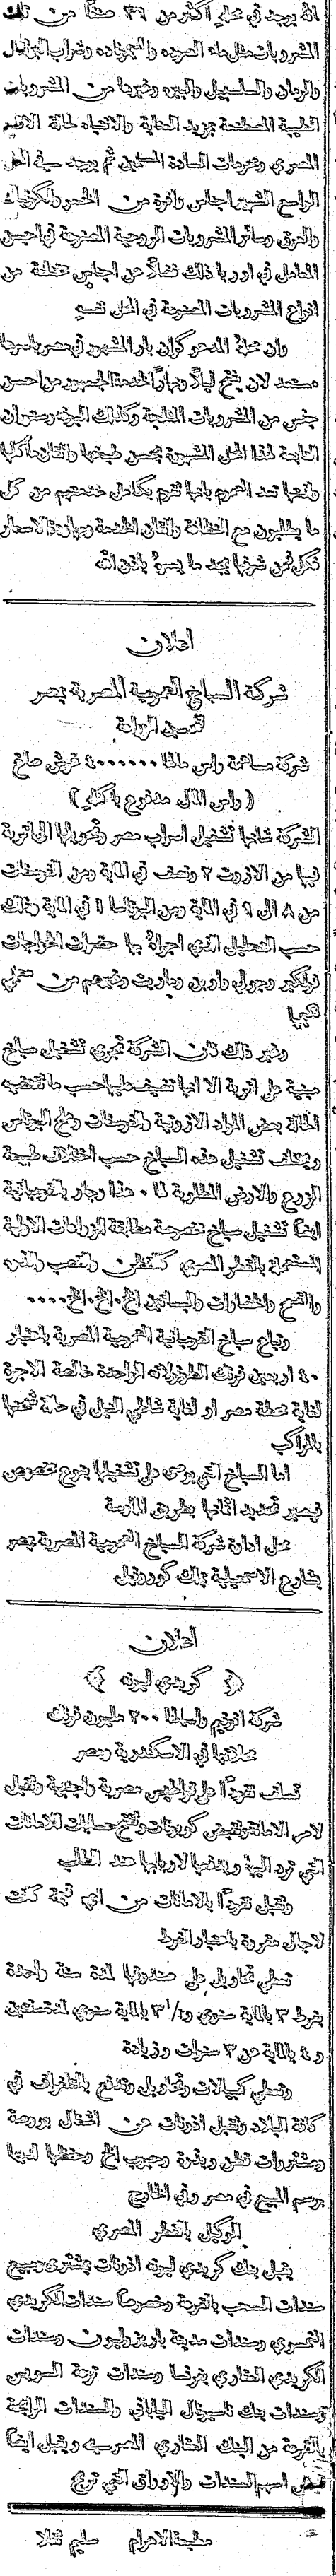 انه يوجد في محلي اكثر من ٣٦ صنفاً من تلك
المشروبات مثل ماء الصوده والليموناده وشراب البرتقال
والرمان والسلسبيل والبيره وغيرها من المشروبات
الطيبة المصطنعة بمزيد العناية والانتباه لحالة الاقليم
المصري وعزومات السادة المسلمين ثم يوجد في المحل
الراسع الشهير اجناس وافرة من الخمور والكونياك
والعرق وسائر المشروبات الروحية المصنوعة في احسن
المعامل في اوربا وذلك فضلاً عن اجناس مختلفة من
انواع المشروبات المصنوعة في المحل نفسه
وان محلهُ المدعو كران بار المشهور في مصر باسرها
مستعد لان يفتح ليلاً ونهاراً لخدمة الجمهور من احسن
جنس من المشروبات المثلجة وكذلك البوفه ورستوران
التابعة لهذا المحل المشهورة بحسن طبخها واتقان ماكلها
وانها تعد العموم بانها تقوم بكامل خدمتهم من كل
ما يطلبون مع النظافة واتقان الخدمة ومهاودة الاسعار
فكل من شرفها يجد ما يسرهُ باذن الله
اعلان
شركة السباخ العمومية المصرية بمصر
لتحسين الزراعة
شركة مساهمة راس مالها ٤٠٠٠٠٠٠ قرش صاغ
(راس المال مدفوع باكملهِ)
الشركة غايتها تشغيل اسراب مصر وتحويلها الى اتربة
فيها من الازوت ٢ ونصف في الماية ومن الفوسفات
من ٨ الى ٩ في الماية ومن البوتاسا ٥ في الماية وذلك
حسب التحليل الذي اجراهُ بها حضرات الخواجات
فولكير وجولي وارين وباربت وغيرهم من معلمي
الكيميا
وغير ذلك فان الشركة تجري تشغيل سباخ
مبنية على اتربة الا انها تضيف عليها حسب ما تقتضيه
الحالة بعض المواد الازوتية والفوسفات وملح البوتاس
ويختلف تشغيل هذه السباخ حسب اختلاف طبيعة
الزروع والارض المطلوبة لها ٠ هذا وجار بالقومبانية
ايضاً تشغيل سباخ مخصوصة مطابقة للزراعات الاولية
المستعملة بالقطر المصري كالقطن والقصب والذره
والقمح والخضارات والبساتين الخ٠ الخ٠ الخ٠٠٠٠
وتباع سباخ القومبانية العمومية المصرية باعتبار
٤٠ اربعين فرنك الطونولاته الواحدة خالصة الاجرة
لغاية محطة مصر او لغاية شاطي النيل في حالة شحنها
بالمراكب
اما السباخ التي يوصى على تشغيلها بنوع مخصوص
فيصير تحديد اثمانها بطريق الممارسة
محل ادارة شركة السباخ العمومية المصرية بمصر
بشارع الاسمعيلية بملك كورونيل
اعلان
﴿ كريدي ليونه ﴾
شركة انونيم راسمالها ٢٠٠ مليون فرنك
محلاتها في الاسكندرية ومصر
تسلف نقوداً على قراطيس مصرية واجنبية وتقبل
لامر الامانة وتقبض كوبونات وتفتح حسابات للامانات
التي ترد اليها ويدفعها لاربابها عند الطلب
وتقبل نقوداً بالامانات من اي قيمة كانت
لاجال مقررة باعتبار الفرط
تعطي تحاويل على صندوقها لمدة سنة واحدة
بفرط ٣ بالماية سنوي و٣١/٢ بالماية سنوي لمدة سنتين
و٤ بالماية عن ٣ سنوات وزيادة
وتعطي كمبيالات وتحاويل وتدفع بالتلغراف في
كافة البلاد وتقبل اذونات عن اشغال بورصة
ومشتروات قطن وبذرة وحبوب الخ وحفظها لديها
برسم المبيع في مصر وفي الخارج
الوكيل بالقطر المصري
يقبل بنك كريدي ليونه اذونات بمشترى ومبيع
سندات السحب بالقرعة وخصوصاً سندات الكريدي
النمسوي وسندات مدينة باريز وليون وسندات
الكريدي العقاري بفرنسا وسندات ترعة السويس
وسندات بنك ناسيونال اليوناني والسندات الرابحة
بالقرعة من البنك العقاري المصري ويقبل ايضاً
قبض اسهم السندات والاوراق التي تربح
مطبعة الاهرام سليم تقلا